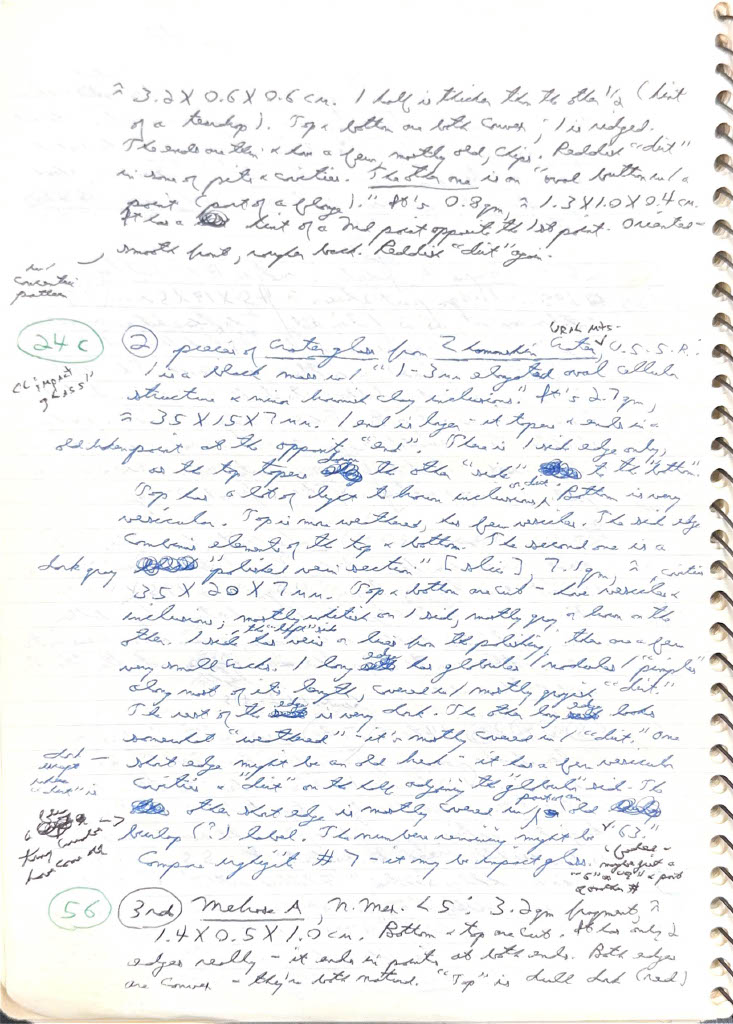 ≈ 3.2 X 0.6 X 0.6 cm. 1 half is thicker than the other 1/2 (hint
of a teardrop). Top & bottom are both convex; 1 is ridged.
The ends are thin & has a few, mostly old, chips. Reddish "dirt"
in some of pits & cavities. The other one is an "oval button w/ a
point (part of a flange)." It's 0.8gm, ≈ 1.3 X 1.0 X 0.4 cm.
It has a hint of a 2nd point opposite the 1st point. Oriented -
smooth front, rougher back. Reddish "dirt" again.
w/
concentric
pattern
24c 2 pieces of crater glass from Zhamanshin Crater, Ural Mts. U.S.S.R.:
("impact
glass")
1 is a black mass w/ "1-3mm elongated oval cellular
structure & minor brownish clay inclusions." It's 2.7gm,
≈ 35 X 15 X 7 mm. 1 end is larger - it tapers & ends in a
point at the opposite "end". There is 1 side edge only,
as the top tapers the other "side" to the "bottom".
Top has a lot of light to brown inclusions or dirt. Bottom is very
vesicular. Top is more weathered, has few vesicles. The side edge
combines elements of the top & bottom. The second one is a
dark gray "polished section" [slice], 7.1gm, ≈
35 X 20 X 7 mm. Top & bottom are cut - have vesicles, cavities &
inclusions; mostly whitish on 1 side, mostly gray or brown on the
other. 1 side has lines from the polishing, there are a few
very small cracks. 1 long edge has globules/nodules/"pimples"
along most of its length, covered w/ mostly grayish "dirt."
The rest of the edge is very dark. The other long edge looks
somewhat "weathered" - it's mostly covered w/ "dirt." One
short edge might be an old break - it has a few vesicular
dark
except
where
"dirt" is
cavities & "dirt" on the half adjoining the "globule" side. The
other short edge is mostly covered w/ part of an old
burlap (?) label. The numbers remaining might be "63."
a few
tiny
have come off
(faded -
maybe just a
"6" or "5" & part
of another #
Compare w/ #7 - it may be impact glass.
56 3rd Melrose A, N. Mex. L5: 3.2gm fragment, ≈
1.4 X 0.5 X 1.0 cm. Bottom & top are cut. It has only 2
edges really - it ends in points at both ends. Both edges
are convex - they're both natural. "Top" is dull dark (red)